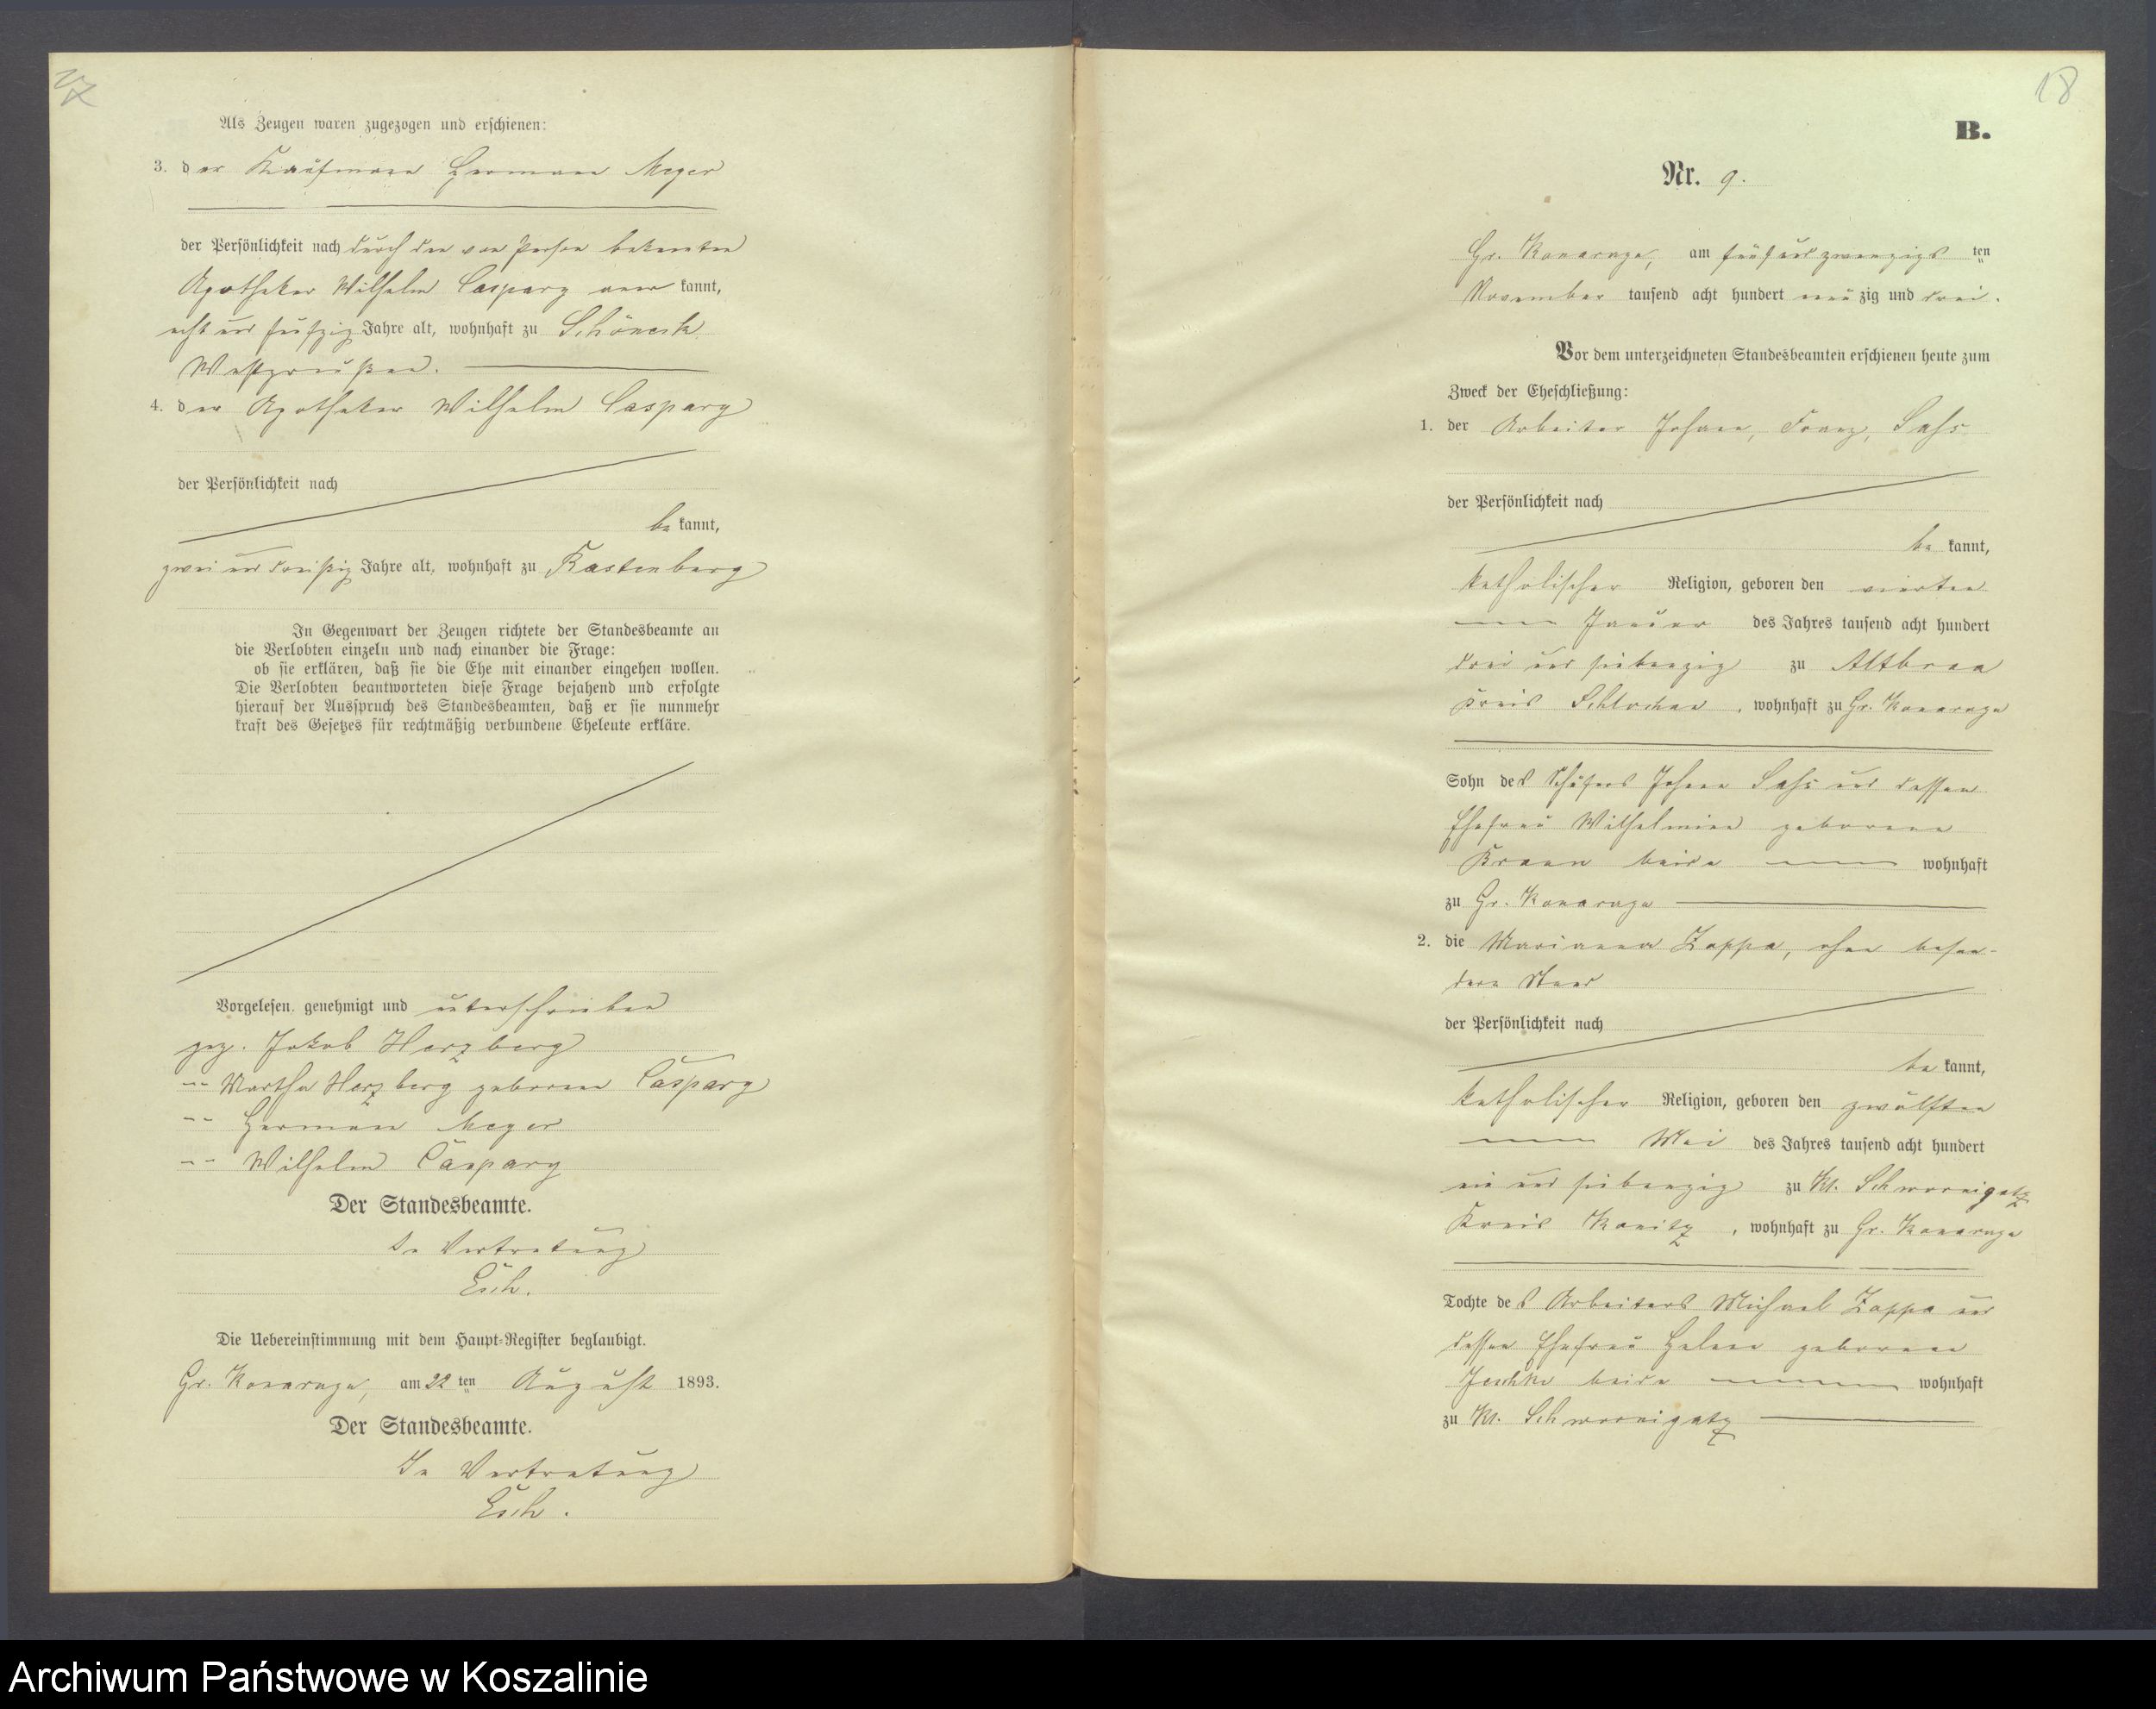 Als Zeugen waren zugezogen und erschienen:
3. der Kaufmann Hermann Meyer
der Persönlichkeit nach durch den von Person bekannten
Apotheker Wilhelm Caspary aner kannt,
acht und fünfzig Jahre alt, wohnhaft zu Schöneck
Westpreußen.
4. der Apotheker Wilhelm Caspary
der Persönlichkeit nach
be kannt,
zwei und dreißig Jahre alt, wohnhaft zu Rastenburg
In Gegenwart der Zeugen richtete der Standesbeamte an
die Verlobten einzeln und nach einander die Frage:
ob sie erklären, daß sie die Ehe mit einander eingehen wollen.
Die Verlobten beantworteten diese Frage bejahend und erfolgte
hierauf der Ausspruch des Standesbeamten, daß er sie nunmehr
kraft des Gesetzes für rechtmäßig verbundene Eheleute erkläre.
Vorgelesen, genehmigt und unterschrieben
gez. Jakob Herzberg
" Martha Herzberg geborene Caspary
" Hermann Meyer
" Wilhelm Caspary
Der Standesbeamte.
In Vertretung
Esch.
Die Uebereinstimmung mit dem Haupt-Register beglaubigt.
Gr. Konarzyn, am 22 ten August 1893.
Der Standesbeamte.
In Vertretung
Esch.
18
B.
Nr. 9.
Gr. Konarzyn, am fünfundzwanzigs ten
November tausend acht hundert neun zig und drei.
Vor dem unterzeichneten Standesbeamten erschienen heute zum
Zweck der Eheschließung:
1. der Arbeiter Johann, Franz, Sahs
der Persönlichkeit nach
be kannt,
katholischer Religion, geboren den vierten
Januar des Jahres tausend acht hundert
drei und siebenzig zu Altbraa
Kreis Schlochau, wohnhaft zu Gr. Konarzyn
Sohn des Schäfers Johann Sahs und dessen
Ehefrau Wilhelmine geborene
beide wohnhaft
zu Gr. Konarzyn
2. die Marianna Zappa, ohne beson-
dern Stand
der Persönlichkeit nach
be kannt,
katholischer Religion, geboren den zwölften
Mai des Jahres tausend acht hundert
ein und siebenzig zu Kl. Schwornigatz
Kreis Konitz, wohnhaft zu Gr. Konarzyn
Tochte des Arbeiters Michael Zappa und
dessen Ehefrau Helene geborene
Jeschke beide wohnhaft
zu Kl. Schwornigatz
Archiwum Państwowe w Koszalinie